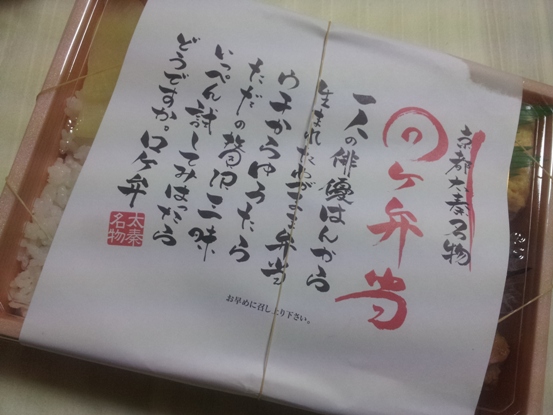 京都太秦名物
ロケ弁当
一人の俳優はんから
生まれたわがまま弁当
ウチからゆうたら
ただの贅沢三昧
いっぺん試してみはったら
どうですか。ロケ弁
太秦名物
お早めに召し上り下さい。